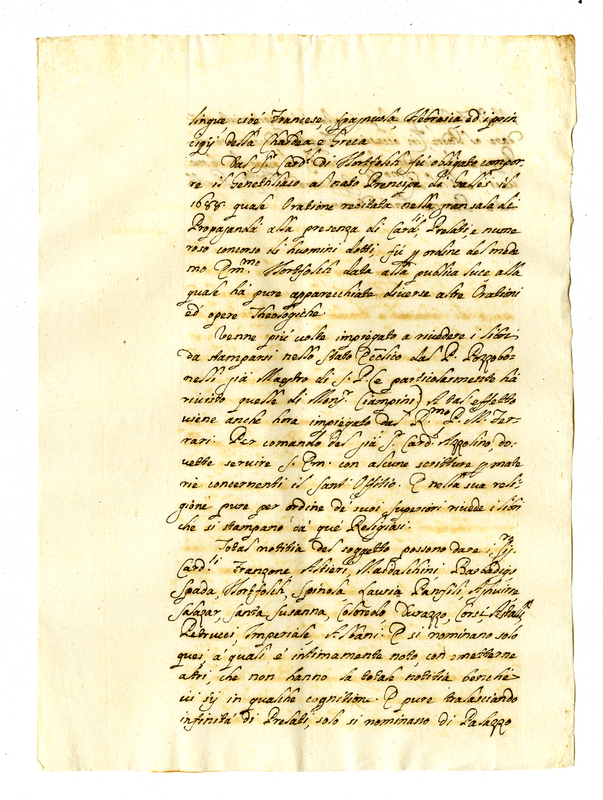 lingue cioè Francese, Spagnuola, Hebraica ed i prin
cipij della Chaldea e Greca
Dal Sr. Card. di Nortfolch fu obligato compor
re il Genethliaco al nato Prencipe di Galles il
1688. quale Oratione recitata nella gran sala di
Propaganda alla presenza di Cardli, Prelati, e nume
roso concorso di huomini dotti, fù p ordine del mede
mo Emmo Nortfolch data alla publica luce alla
quale hà pure apparecchiate diverse altre Orationi
ed opere Theologiche.
Venne più volte impiegato a rivedere i libri
da stamparsi nello Stato Ecclico dal P. Pizzobo-
nelli già Maestro di S. P. (e particolarmente hà
rivisto quelle di Monr. Ciampini) A tal effetto
viene anche hora impiegato dal Rmo P. M. Fer-
rari. Per comando del già Sr. Card. Azzolino, do-
vette servire S. Em. con alcune scritture p mate
rie concernenti il Sant' Offitio. E nella sua reli-
gione pure per ordine de' suoi Superiori rivede i libri
che si stampano da que' Religiosi.
Total notitia del soggetto possono dare i Sri
Cardli Franzone Altieri, Maidalchini Barbadigo
Spada, Nortfolch, Spinola Lauria Panfili, Aguirre
Salazar, Santa Susanna, Coloredo Durazzo, Corsi, Astalli
Petrucci, Imperiale, Albani. E si nominano solo
quei a' quali è intimamente noto, con ometterne
altri, che non hanno la total notitia benche
vi sij in qualche cognitione. E pure tralasciando
infinità di Prelati, solo si nominano di Palazzo